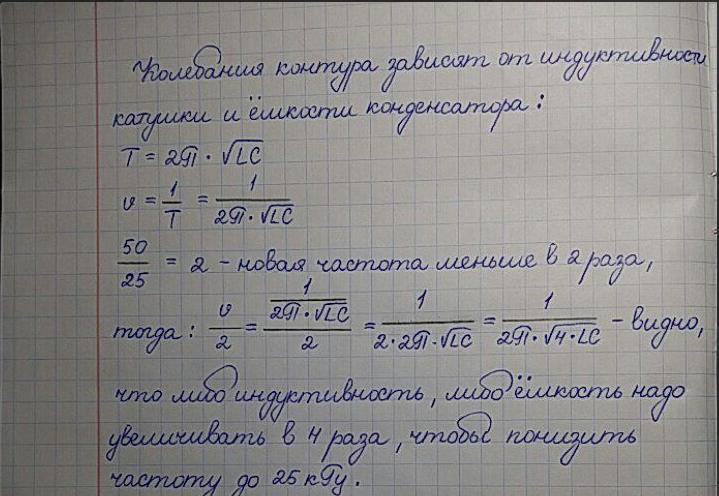 Колебания контура зависят от индуктивности
катушки и ёмкости конденсатора:
T = 2π · √LC
υ = 1/T = 1/(2π · √LC)
50/25 = 2 - новая частота меньше в 2 раза,
тогда: υ/2 = (1/(2π · √LC))/2 = 1/(2 · 2π · √LC) = 1/(2π · √4 · LC) - видно,
что либо индуктивность, либо ёмкость надо
увеличивать в 4 раза, чтобы понизить
частоту до 25 кГц.